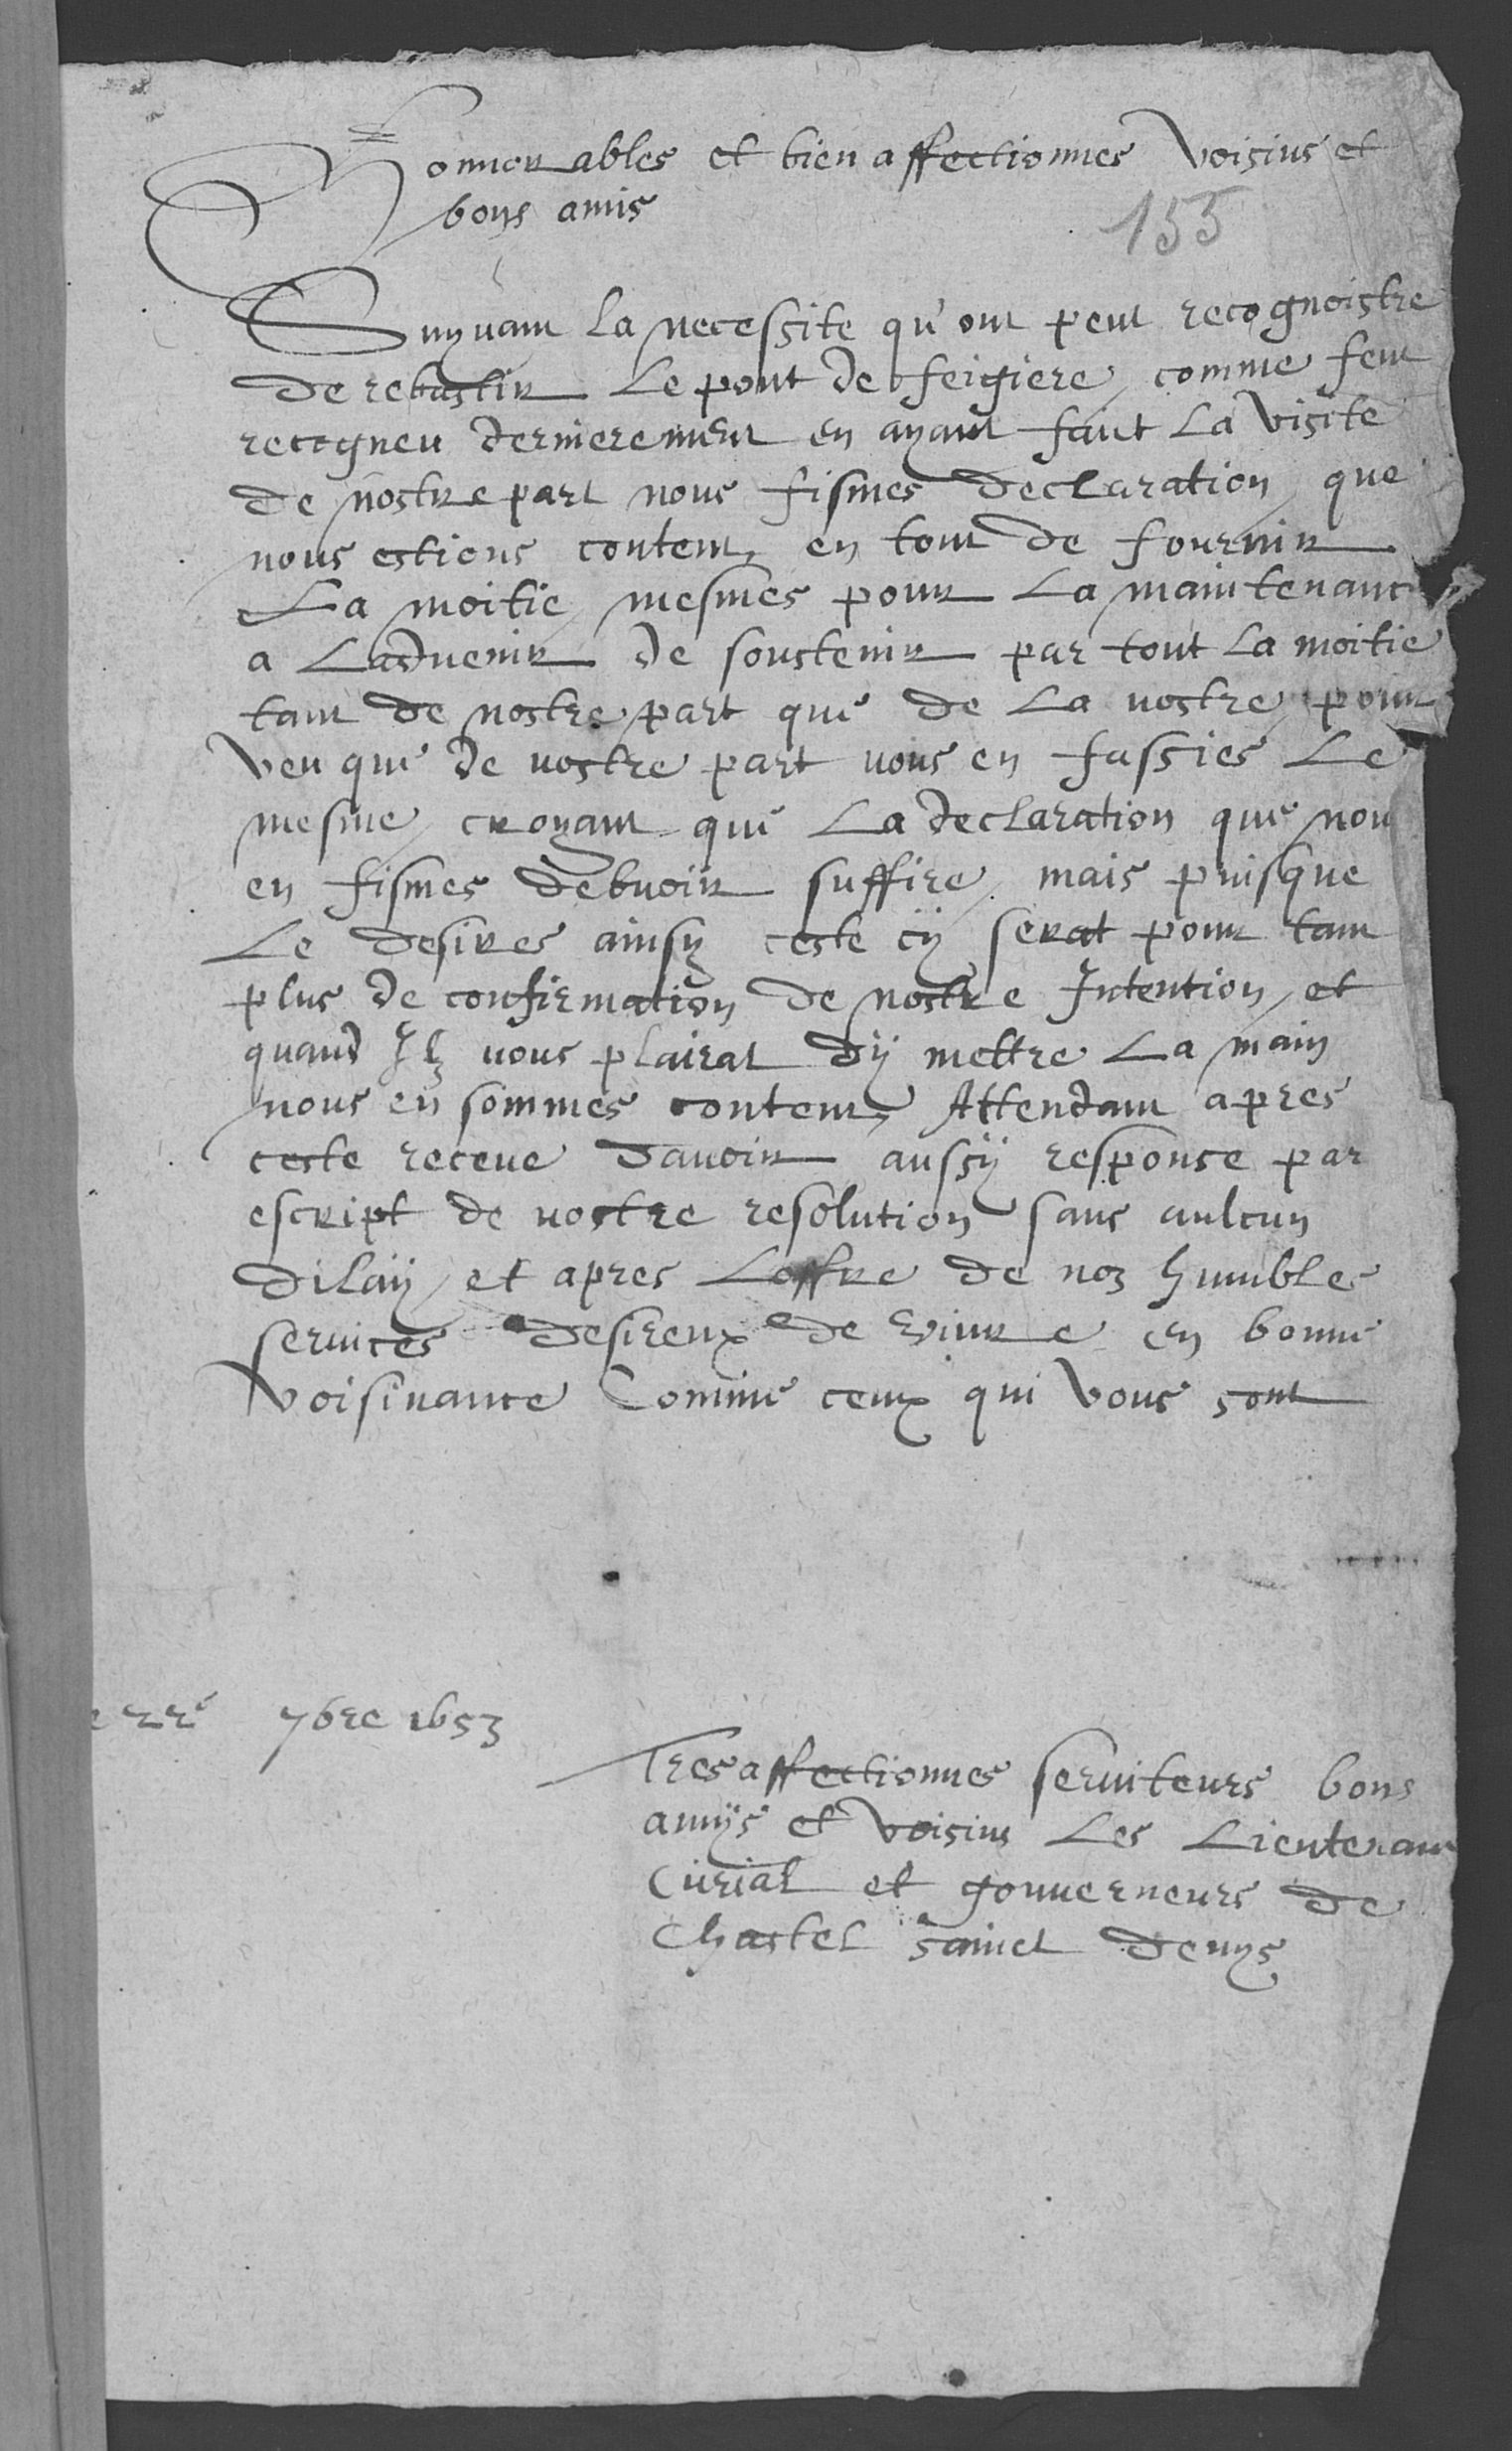 Honnorables et bien affectionnes voisins et
bons amis
155
Suyuant la necessite qu'ont peut recognoistre
de rebastir Le pont de feigiere, comme feut
recogneu dernierement en ayant faict La visite
de nostre part nous fismes declaration que
nous estions content en tout de fournir
La moitie, mesmes pour La maintenance
a Ladvenir de soustenir par tout La moitie
tant de nostre part que de La vostre, pour
veu que de vostre part vous en fassies Le
mesme, croyant que La declaration que nous
en fismes debvoir suffire, mais puisque
Le desires ainsy ceste cy serat pour tant
plus de confirmation de nostre Intention, et
quand Ilz vous plairat dÿ mettre La main
nous en sommes contents Attendant apres
ceste receue davoir aussÿ responce par
escript de vostre resolution sans aulcun
dilaÿ, et apres Loffre de noz humbles
seruices desireux de viure en bonne
voisinance Comme ceux qui vous sont
22e 7bre 1653
Tres affectionnes seruiteurs bons
amÿs et voisins Les Lieutenant
Curial et gouuerneurs de
Chastel sainct denys